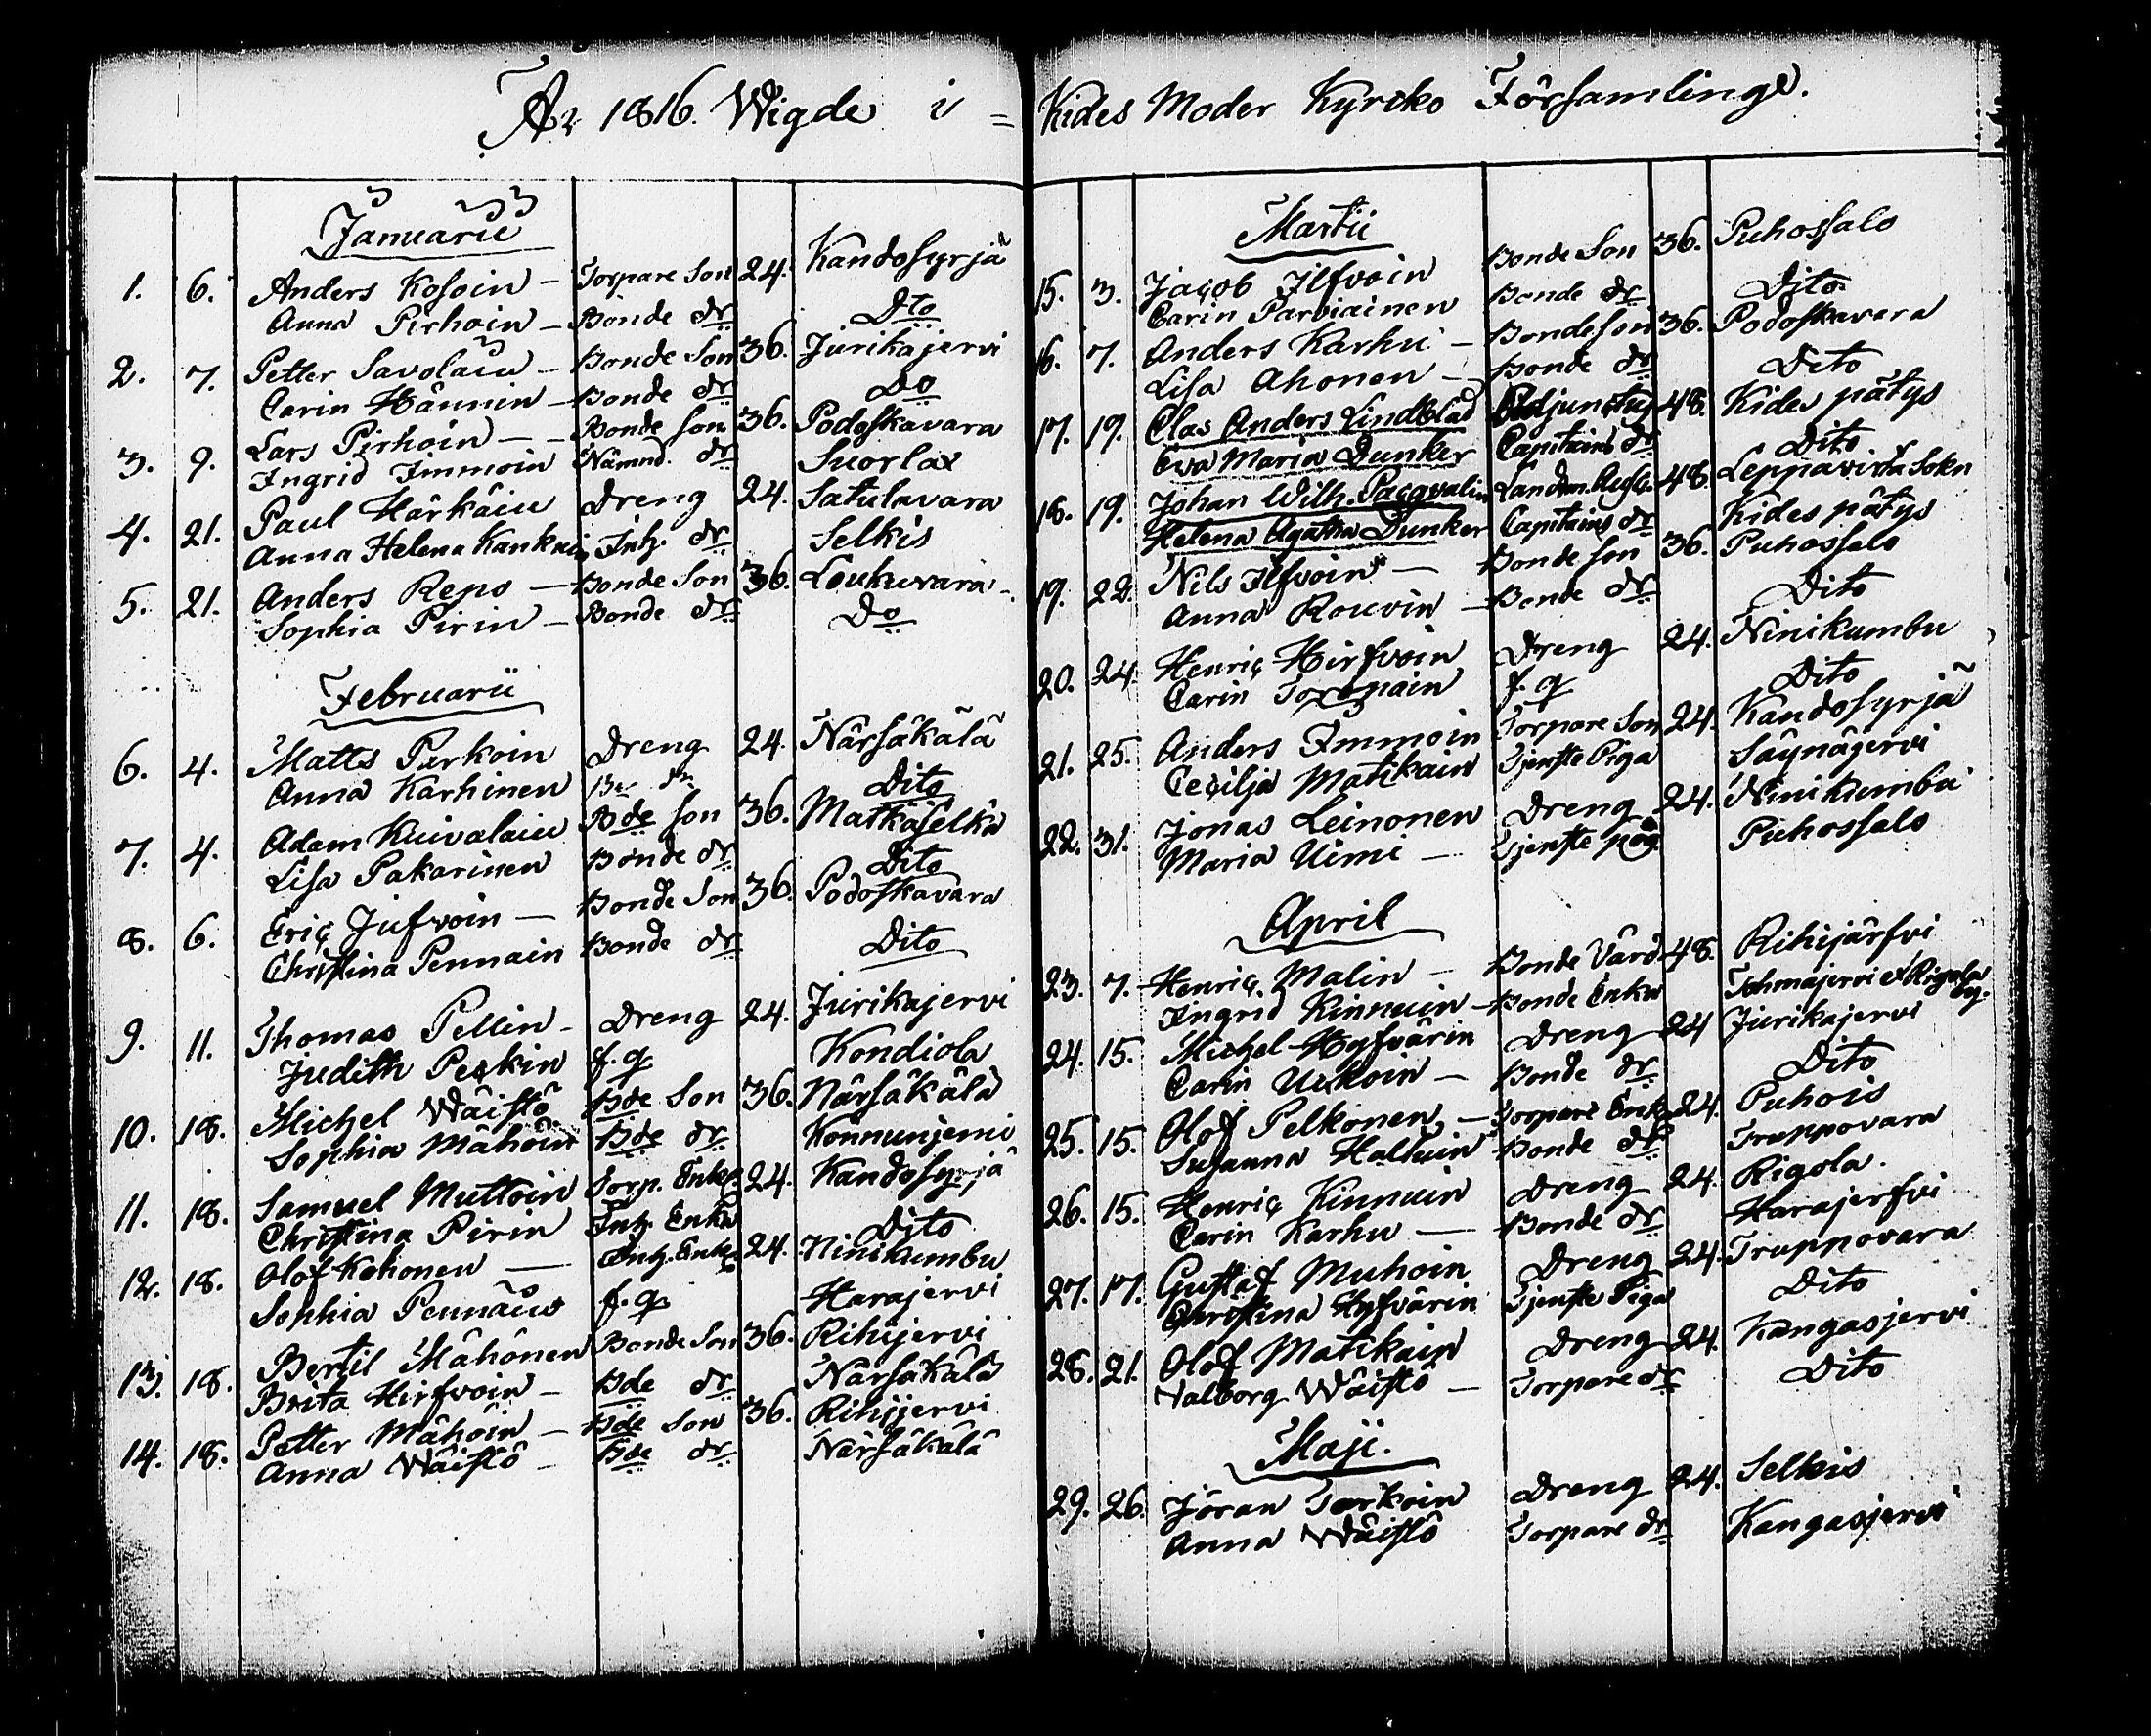 År 1816. Wigde i = Kides Moder Kyrcko Församlinge.
Januarii
1. 6. Anders Kosoin – Torpare Son 24. Kandosyrjä
Anna Pirhoin – Bonde dr Dto
2. 7. Petter Savolain – Bonde Son 36. Jurikajervi
Carin Hännin – Bonde dr Do
3. 9. Lars Pirhoin – – Bonde son 36. Podoskavara
Ingrid Immoin Nämnd. dr Suorlax
4. 21. Paul Härkäin Dreng 24. Satulavara
Anna Helena Kankuin Inh. dr Selkis
5. 21. Anders Repo – Bonde Son 36. Loukuvara
Sophia Pirin – Bonde dr Do
Februarii
6. 4. Matts Purkoin Dreng 24. Närsäkälä
Anna Karhinen Dito
7. 4. Adam Kuivalain Bde son 36. Matkaselkä
Lisa Pakarinen Bonde dr Dito
8. 6. Eric Jufvoin – Bonde Son 36. Podoskavara
Christina Pennain Bonde dr Dito
9. 11. Thomas Pellin – Dreng 24. Jurikajervi
Judith Peskin f. q Kondiola
10. 18. Michel Wäistö Bde Son 36. Närsäkälä
Sophia Mähöin Bde dr Konnunjemi
11. 18. Samuel Muttoin Torp. Enkl. 24. Kandosyrjä
Christina Pirin Inh. Enka Dito
12. 18. Olof Kohonen – Inh. Enkl. 24. Ninikumbu
Sophia Pennäin f. q. Harajervi
13. 18. Bertil Mähönen Bonde Son 36. Rihijervi
Brita Hirfvoin – Bde dr Närsäkälä
14. 18. Petter Mähöin – Bde Son 36. Rihijervi
Anna Wäistö – Bde dr Närsäkälä
Martii
15. 3. Jacob Ilfvoin Bonde Son 36. Puhossalo
Carin Parviainen Bonde dr Dito
16. 7. Anders Karhu – Bonde son 36. Podoskavara
Lisa Ahonen – Bonde dr Dito
17. 19. Clas Anders Lindblad Adjunctus 48. Kides pätys
Eva Maria Dunker Capitains dr Dito
18. 19. Johan Wilh. Pacqvalin Landm. 48. Leppävirta Sokn
Helena Agatha Dunker Capitains dr Kides pätys
19. 22. Nils Ilfvoin – Bonde son 36. Puhossalo
Anna Rouvin – Bonde dr Dito
20. 24. Henric Hirfvoin Dreng 24. Ninikumbu
Carin Toropain f. q Dito
21. 25. Anders Immoin Torpare Son 24. Kandosyrjä
Cecilja Matikain Tjenste Piga Säynäjervi
22. 31. Jonas Leinonen Dreng 24. Ninikumbu
Maria Uimi – Tjenste pig. Puhossalo
April
23. 7. Henric Malin – Bonde Värd 48. Rihijärfvi
Ingrid Kinnuin – Bonde Enka Tohmajervi & Rigola by.
24. 15. Michel Hyfvärin Dreng 24 Jurikajervi
Carin Uskoin – Bonde dr Dito
25. 15. Olof Pelkonen – Torpare Enkl. 24. Puhois
Susanna Haltuin Bonde dr Truppovara
26. 15. Henric Kinnuin Dreng 24. Rigola.
Carin Karhu – Bonde dr Harajerfvi
27. 17. Gustaf Muhoin Dreng 24. Truppovara
Christina Hyfvärin Tjenste Piga Dito
28. 21. Olof Matikain Dreng 24. Kangasjervi
Valborg Wäistö – Torpare dr Dito
Maji.
29. 26. Jöran Turkoin Dreng 24. Selkis
Anna Wäistö Torpare dr Kangasjervi